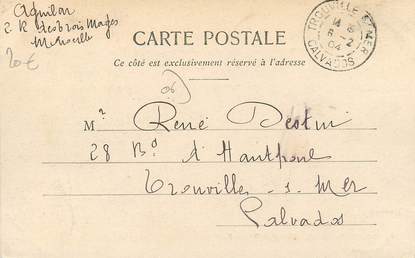 Aquilon
2 R des trois Mages
Marseille
20€
CARTE POSTALE
Ce côté est exclusivement réservé à l'adresse
TROUVILLE S MER
14 6
6 2
04
CALVADOS
Mr René Destin
28 Bd d'Hautpoul
Trouville - s - Mer
Calvados